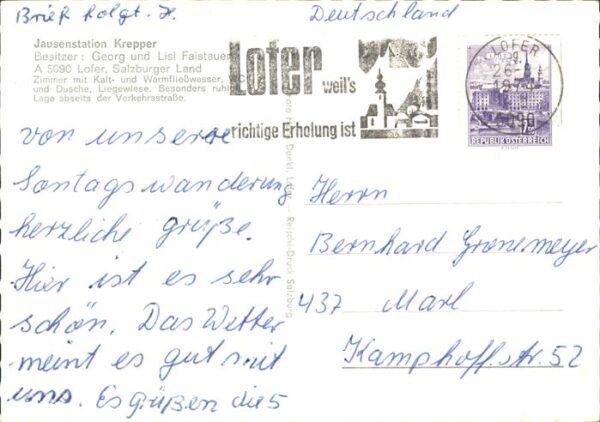 Brief folgt. H.
Deutschland
Jausenstation Krepper
Besitzer: Georg und Lisl Faistauer
A 5090 Lofer, Salzburger Land
Zimmer mit Kalt- und Warmfließwasser,
und Dusche, Liegewiese. Besonders ruhi
Lage abseits der Verkehrsstraße.
Lofer weil's
richtige Erholung ist
LOFER
26.
5090
REPUBLIK ÖSTERREICH
vor unserer
Sontagswanderung
herzliche Grüße.
Hier ist es sehr
schön. Das Wetter
meint es gut mit
uns. Es grüßen die 5
Lofer - Reischl-Druck Salzburg
Herrn
Bernhard Gronemeyer
437 Marl
Kamphoffstr. 52